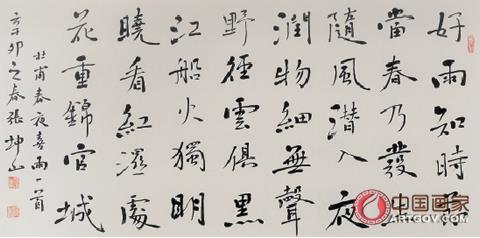 好雨知時節
當春乃發生
隨風潛入夜
潤物細無聲
野徑雲俱黑
江船火獨明
曉看紅濕處
花重錦官城
杜甫春夜喜雨一首
辛卯之春張坤山
中国画家
ARTGOV.COM